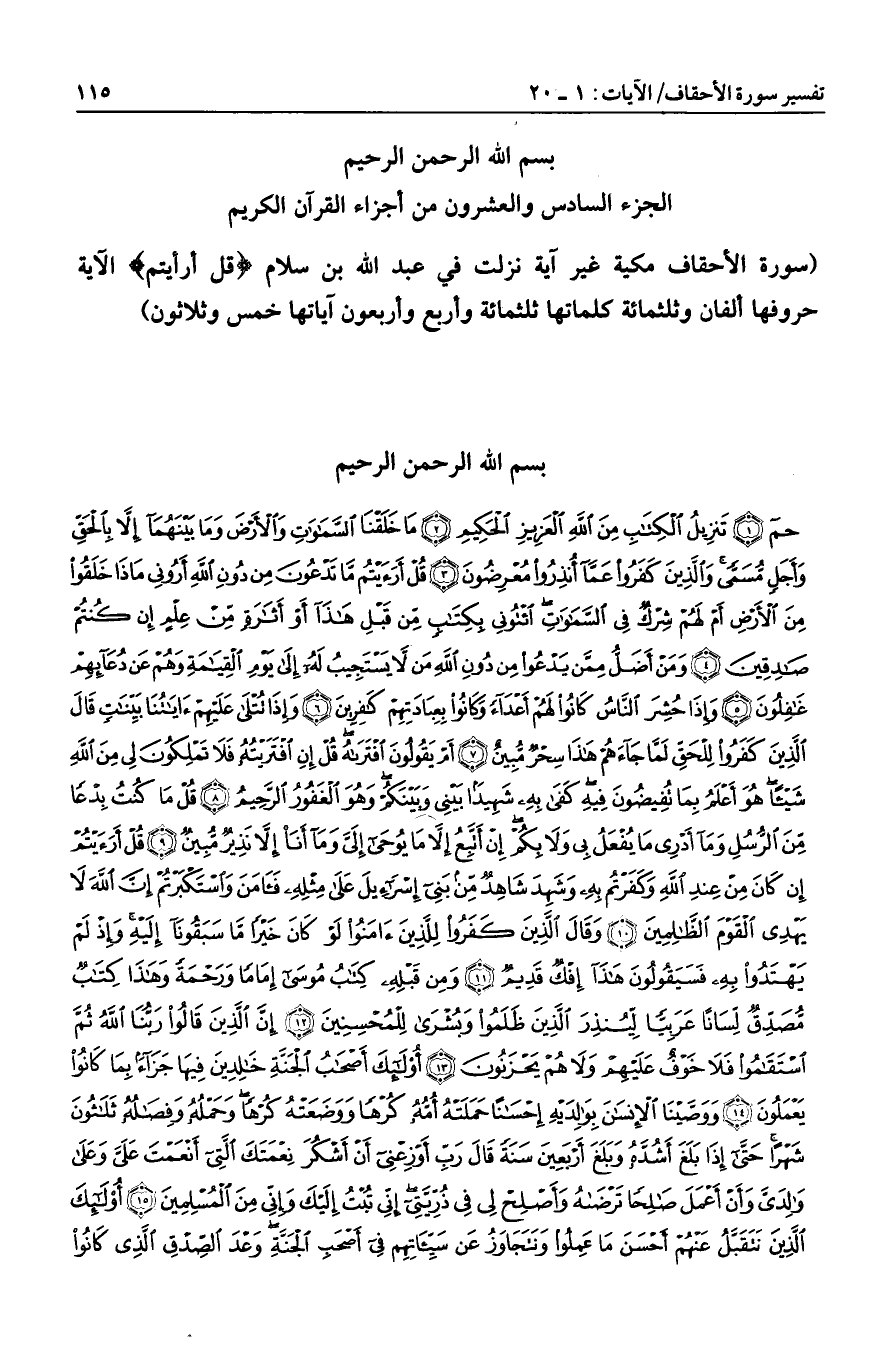 تفسير سورة الأحقاف/ الآيات: ١ - ٢٠ ١١٥
بسم الله الرحمن الرحيم
الجزء السادس والعشرون من أجزاء القرآن الكريم
(سورة الأحقاف مكية غير آية نزلت في عبد الله بن سلام ﴿قل أرأيتم﴾ الآية
حروفها ألفان وثلثمائة كلماتها ثلثمائة وأربع وأربعون آياتها خمس وثلاثون)
بسم الله الرحمن الرحيم
حمٓ ١ تَنزِيلُ ٱلْكِتَٰبِ مِنَ ٱللَّهِ ٱلْعَزِيزِ ٱلْحَكِيمِ ٢ مَا خَلَقْنَا ٱلسَّمَٰوَٰتِ وَٱلْأَرْضَ وَمَا بَيْنَهُمَآ إِلَّا بِٱلْحَقِّ
وَأَجَلٍ مُّسَمًّى ۚ وَٱلَّذِينَ كَفَرُوا۟ عَمَّآ أُنذِرُوا۟ مُعْرِضُونَ ٣ قُلْ أَرَءَيْتُم مَّا تَدْعُونَ مِن دُونِ ٱللَّهِ أَرُونِى مَاذَا خَلَقُوا۟
مِنَ ٱلْأَرْضِ أَمْ لَهُمْ شِرْكٌ فِى ٱلسَّمَٰوَٰتِ ۖ ٱئْتُونِى بِكِتَٰبٍ مِّن قَبْلِ هَٰذَآ أَوْ أَثَٰرَةٍ مِّنْ عِلْمٍ إِن كُنتُمْ
صَٰدِقِينَ ٤ وَمَنْ أَضَلُّ مِمَّن يَدْعُوا۟ مِن دُونِ ٱللَّهِ مَن لَّا يَسْتَجِيبُ لَهُۥٓ إِلَىٰ يَوْمِ ٱلْقِيَٰمَةِ وَهُمْ عَن دُعَآئِهِمْ
غَٰفِلُونَ ٥ وَإِذَا حُشِرَ ٱلنَّاسُ كَانُوا۟ لَهُمْ أَعْدَآءً وَكَانُوا۟ بِعِبَادَتِهِمْ كَٰفِرِينَ ٦ وَإِذَا تُتْلَىٰ عَلَيْهِمْ ءَايَٰتُنَا بَيِّنَٰتٍ قَالَ
ٱلَّذِينَ كَفَرُوا۟ لِلْحَقِّ لَمَّا جَآءَهُمْ هَٰذَا سِحْرٌ مُّبِينٌ ٧ أَمْ يَقُولُونَ ٱفْتَرَىٰهُ ۖ قُلْ إِنِ ٱفْتَرَيْتُهُۥ فَلَا تَمْلِكُونَ لِى مِنَ ٱللَّهِ
شَيْـًٔا ۖ هُوَ أَعْلَمُ بِمَا تُفِيضُونَ فِيهِ ۖ كَفَىٰ بِهِۦ شَهِيدًۢا بَيْنِى وَبَيْنَكُمْ ۖ وَهُوَ ٱلْغَفُورُ ٱلرَّحِيمُ ٨ قُلْ مَا كُنتُ بِدْعًا
مِّنَ ٱلرُّسُلِ وَمَآ أَدْرِى مَا يُفْعَلُ بِى وَلَا بِكُمْ ۖ إِنْ أَتَّبِعُ إِلَّا مَا يُوحَىٰٓ إِلَىَّ وَمَآ أَنَا۠ إِلَّا نَذِيرٌ مُّبِينٌ ٩ قُلْ أَرَءَيْتُمْ
إِن كَانَ مِنْ عِندِ ٱللَّهِ وَكَفَرْتُم بِهِۦ وَشَهِدَ شَاهِدٌ مِّنۢ بَنِىٓ إِسْرَٰٓءِيلَ عَلَىٰ مِثْلِهِۦ فَـَٔامَنَ وَٱسْتَكْبَرْتُمْ ۖ إِنَّ ٱللَّهَ لَا
يَهْدِى ٱلْقَوْمَ ٱلظَّٰلِمِينَ ١٠ وَقَالَ ٱلَّذِينَ كَفَرُوا۟ لِلَّذِينَ ءَامَنُوا۟ لَوْ كَانَ خَيْرًا مَّا سَبَقُونَآ إِلَيْهِ ۚ وَإِذْ لَمْ
يَهْتَدُوا۟ بِهِۦ فَسَيَقُولُونَ هَٰذَآ إِفْكٌ قَدِيمٌ ١١ وَمِن قَبْلِهِۦ كِتَٰبُ مُوسَىٰٓ إِمَامًا وَرَحْمَةً ۚ وَهَٰذَا كِتَٰبٌ
مُّصَدِّقٌ لِّسَانًا عَرَبِيًّا لِّيُنذِرَ ٱلَّذِينَ ظَلَمُوا۟ وَبُشْرَىٰ لِلْمُحْسِنِينَ ١٢ إِنَّ ٱلَّذِينَ قَالُوا۟ رَبُّنَا ٱللَّهُ ثُمَّ
ٱسْتَقَٰمُوا۟ فَلَا خَوْفٌ عَلَيْهِمْ وَلَا هُمْ يَحْزَنُونَ ١٣ أُو۟لَٰٓئِكَ أَصْحَٰبُ ٱلْجَنَّةِ خَٰلِدِينَ فِيهَا جَزَآءًۢ بِمَا كَانُوا۟
يَعْمَلُونَ ١٤ وَوَصَّيْنَا ٱلْإِنسَٰنَ بِوَٰلِدَيْهِ إِحْسَٰنًا ۖ حَمَلَتْهُ أُمُّهُۥ كُرْهًا وَوَضَعَتْهُ كُرْهًا ۖ وَحَمْلُهُۥ وَفِصَٰلُهُۥ ثَلَٰثُونَ
شَهْرًا ۚ حَتَّىٰٓ إِذَا بَلَغَ أَشُدَّهُۥ وَبَلَغَ أَرْبَعِينَ سَنَةً قَالَ رَبِّ أَوْزِعْنِىٓ أَنْ أَشْكُرَ نِعْمَتَكَ ٱلَّتِىٓ أَنْعَمْتَ عَلَىَّ وَعَلَىٰ
وَٰلِدَىَّ وَأَنْ أَعْمَلَ صَٰلِحًا تَرْضَىٰهُ وَأَصْلِحْ لِى فِى ذُرِّيَّتِىٓ ۖ إِنِّى تُبْتُ إِلَيْكَ وَإِنِّى مِنَ ٱلْمُسْلِمِينَ ١٥ أُو۟لَٰٓئِكَ
ٱلَّذِينَ نَتَقَبَّلُ عَنْهُمْ أَحْسَنَ مَا عَمِلُوا۟ وَنَتَجَاوَزُ عَن سَيِّـَٔاتِهِمْ فِىٓ أَصْحَٰبِ ٱلْجَنَّةِ ۖ وَعْدَ ٱلصِّدْقِ ٱلَّذِى كَانُوا۟